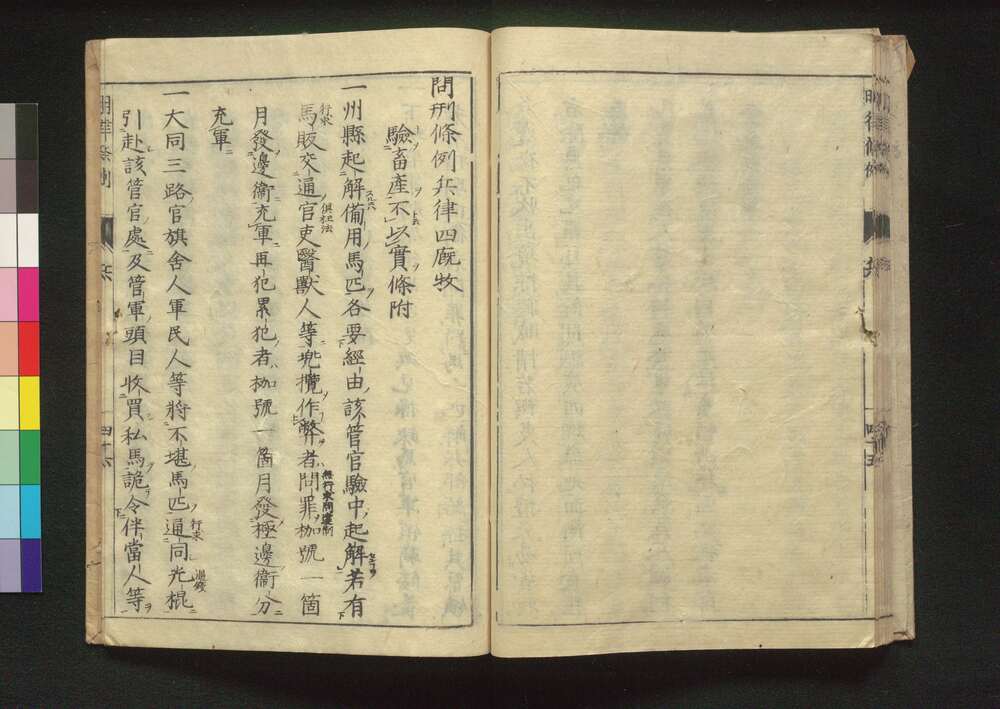 問刑條例兵律四厩牧
驗畜產不以實條附
一州縣起解備用馬匹各要經由該管官驗中起解若有
馬販交通官吏醫獸人等兠攬作弊者問罪枷號一箇
月發邊衛充軍再犯累犯者枷號一箇月發極邊衛分
充軍
一大同三路官旗舍人軍民人等將不堪馬匹通同光棍
引赴該管官處及管軍頭目收買私馬詭令伴當人等